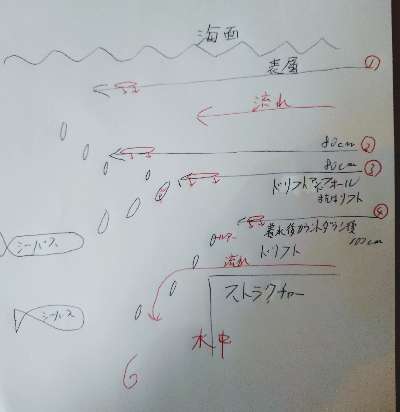 海面
表層 ①
流れ
80cm ②
80cm ③
ドリフトアンドフォール
またはリフト
④
着水後カウントダウン後
100cm
シーバス
ルアー
ドリフト
流れ
ストラクチャー
シーバス
水中
6